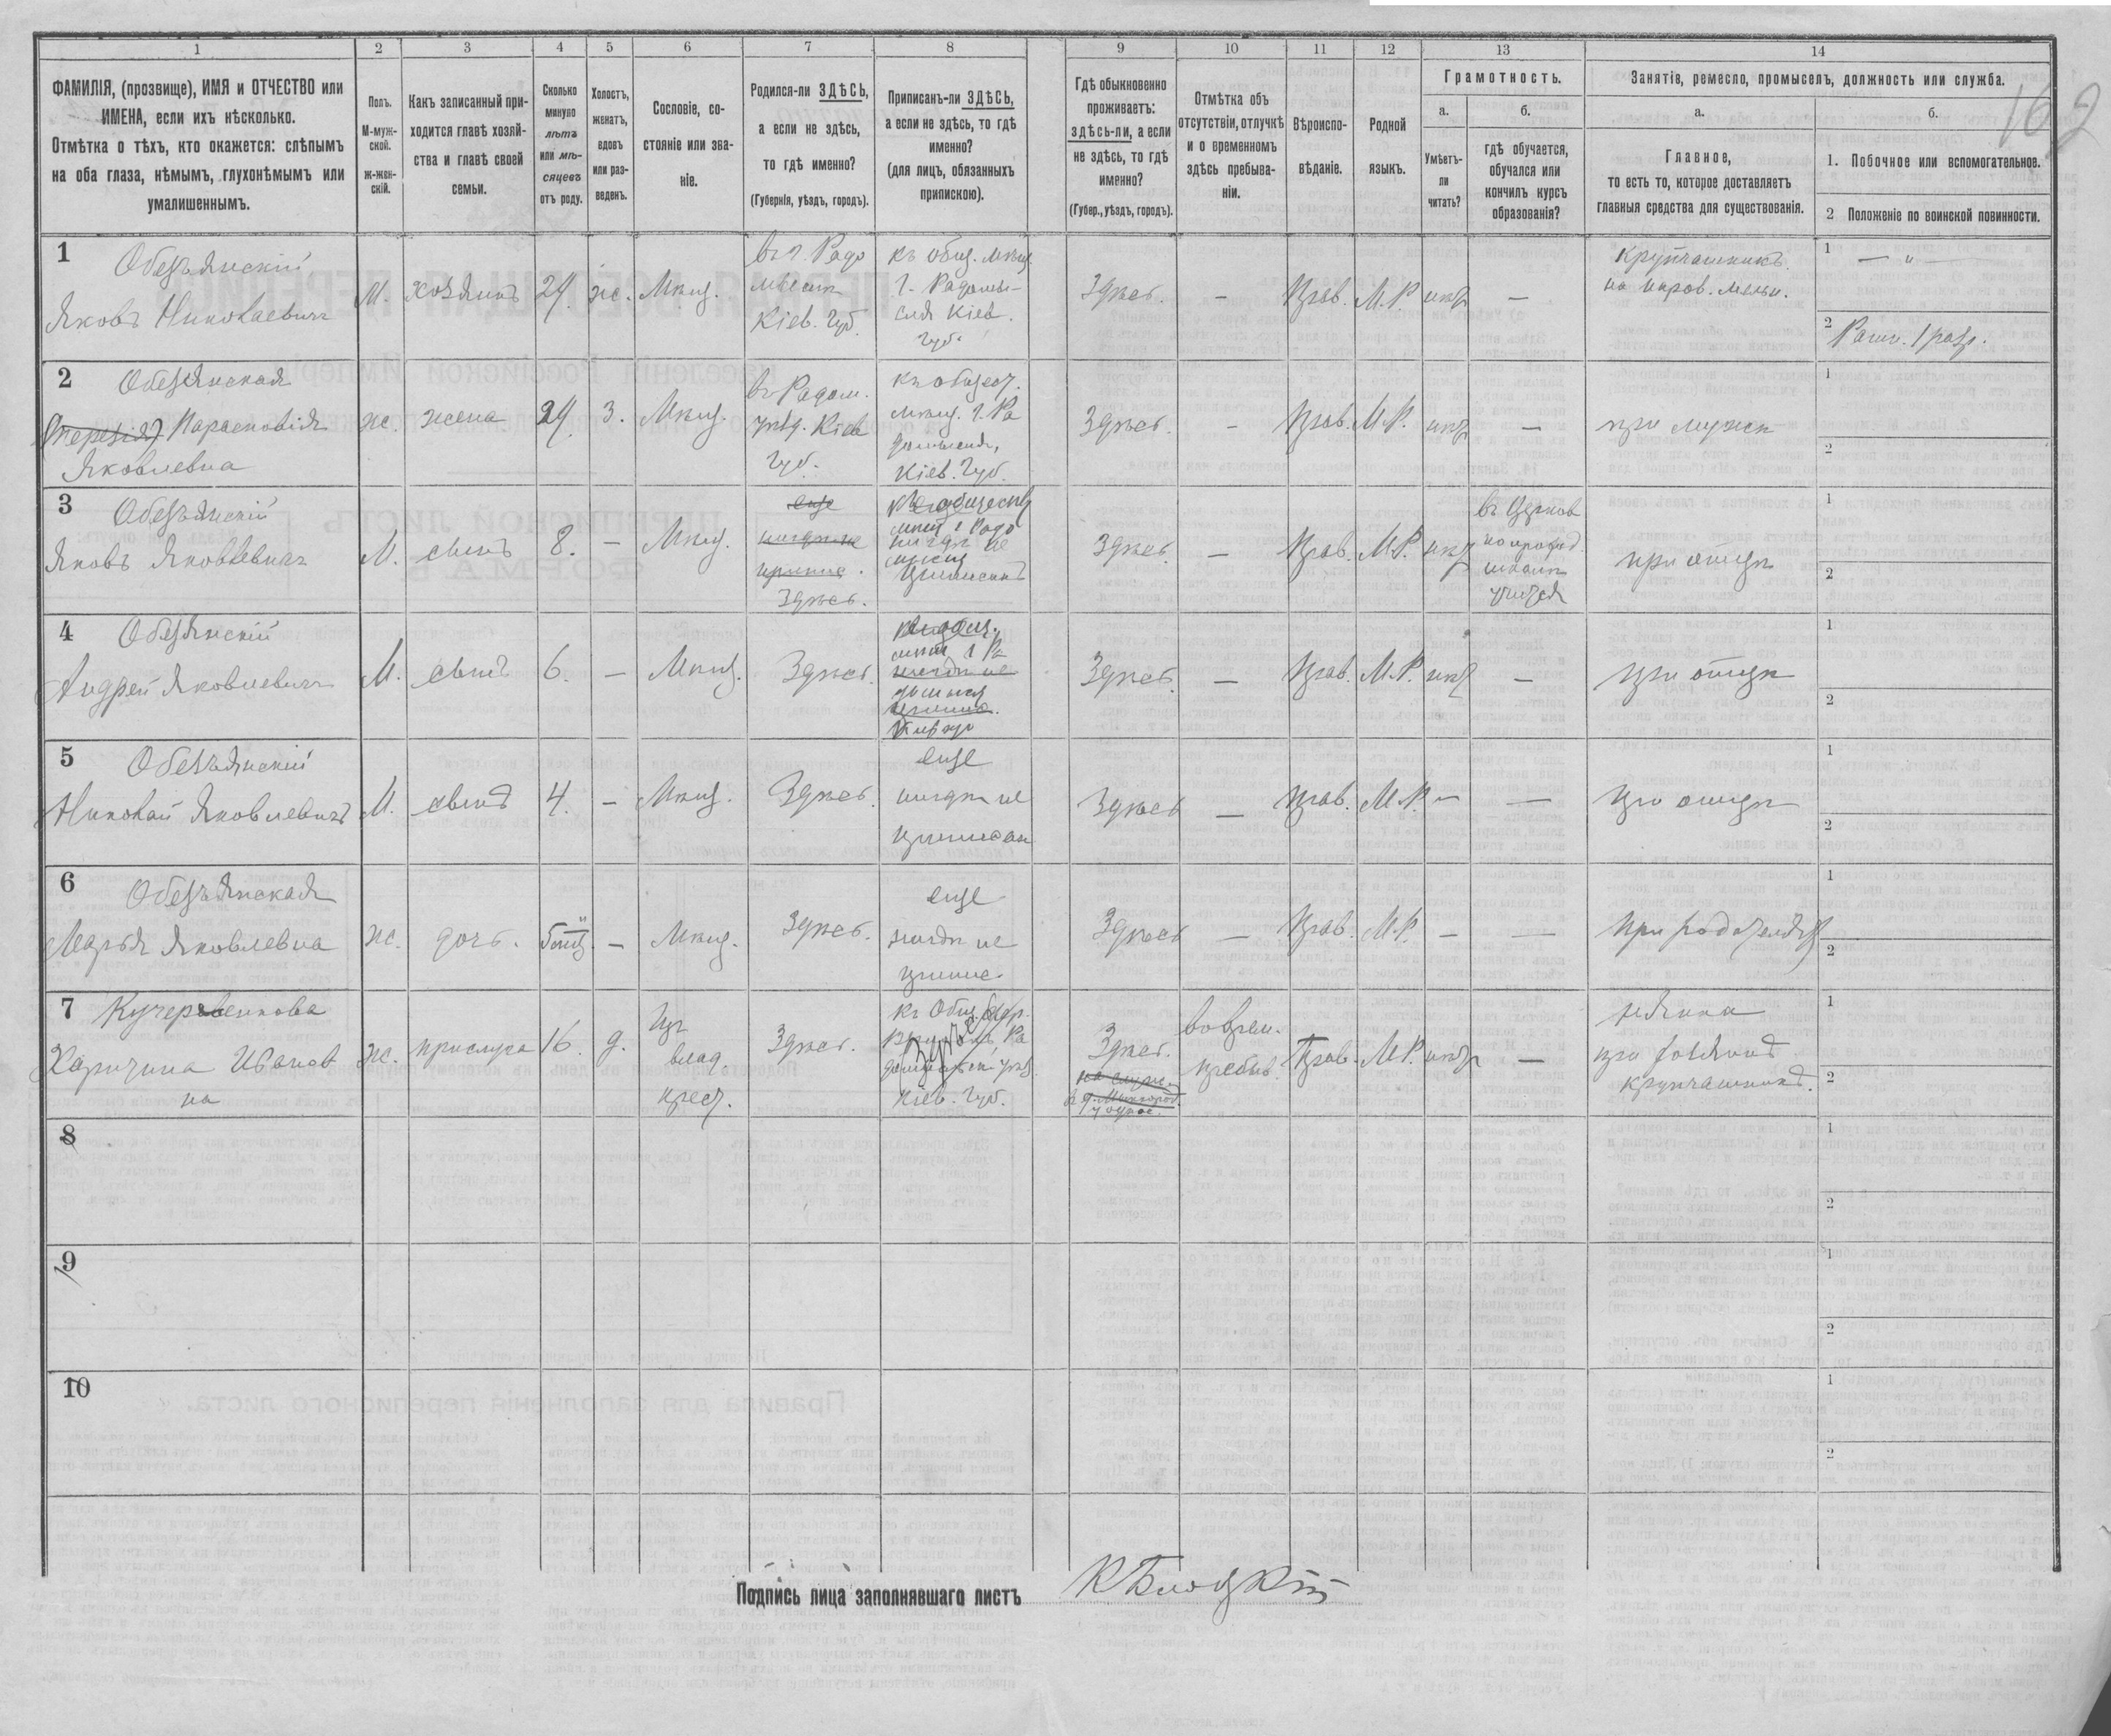 162
1 2 3 4 5 6 7 8 9 10 11 12 13 14
ФАМИЛІЯ, (прозвище), ИМЯ и ОТЧЕСТВО или
ИМЕНА, если ихъ нѣсколько.
Отмѣтка о тѣхъ, кто окажется: слѣпымъ
на оба глаза, нѣмымъ, глухонѣмымъ или
умалишеннымъ.
Полъ.
М-муж-
ской.
Ж-жен-
скій.
Какъ записанный при-
ходится главѣ хозяй-
ства и главѣ своей
семьи.
Сколько
минуло
лѣтъ
или мѣ-
сяцевъ
отъ роду.
Холостъ,
женатъ,
вдовъ
или раз-
веденъ.
Сословіе, со-
стояніе или зва-
ніе.
Родился-ли ЗДѢСЬ,
а если не здѣсь,
то гдѣ именно?
(Губернія, уѣздъ, городъ).
Приписанъ-ли ЗДѢСЬ,
а если не здѣсь, то гдѣ
именно?
(для лицъ, обязанныхъ
припискою).
Гдѣ обыкновенно
проживаетъ:
здѣсь-ли, а если
не здѣсь, то гдѣ
именно?
(Губер., уѣздъ, городъ).
Отмѣтка объ
отсутствіи, отлучкѣ
и о временномъ
здѣсь пребыва-
ніи.
Вѣроиспо-
вѣданіе.
Родной
языкъ.
Грамотность.
а.
Умѣетъ-
ли
читать?
б.
гдѣ обучается,
обучался или
кончилъ курсъ
образованія?
Занятіе, ремесло, промыселъ, должность или служба.
а.
Главное,
то есть то, которое доставляетъ
главныя средства для существованія.
б.
1. Побочное или вспомогательное.
2 Положеніе по воинской повинности.
1
Обезъянскій
Яковъ Николаевичъ
М.
хозяинъ
29.
ж.
Мѣщ.
въ г. Радо
мыслѣ
Кіев. Губ.
къ общ. мѣщ.
г. Радомы-
сля Кіев.
Губ.
Здѣсь.
—
Прав.
М.Р.
—
Крупчашникъ
на паров. мельн.
1 — " —
2 Ратн. 1 разр.
2
Обезъянская
Парасковія
Яковлевна
ж.
жена
29.
з.
Мѣщ.
въ Радом.
уѣзд. Кіев
Губ.
къ общест.
мѣщ. г. Ра
домысля,
Кіев. Губ.
Здѣсь.
—
Прав.
М.Р.
—
при мужѣ
1
2
3
Обезъянскій
Яковъ Яковлевичъ
М.
сынъ
8.
—
Мѣщ.
еще
нигдѣ не
припис.
Здѣсь.
Здѣсь.
—
Прав.
М.Р.
въ Церков
школѣ
учится
при отцѣ
1
2
4
Обезъянскій
Андрей Яковлевичъ
М.
сынъ
6.
—
Мѣщ.
Здѣсь.
нигдѣ не
Здѣсь.
—
Прав.
М.Р.
—
при отцѣ
1
2
5
Обезъянскій
Николай Яковлевичъ
М.
сынъ
4.
—
Мѣщ.
Здѣсь.
еще
нигдѣ не
приписан
Здѣсь
—
Прав.
М.Р.
—
—
при отцѣ
1
2
6
Обезъянская
Марья Яковлевна
ж.
дочь.
—
Мѣщ.
Здѣсь.
еще
нигдѣ не
припис.
Здѣсь
—
Прав.
М.Р.
—
—
при родителях
1
2
7
Харитина Иванов
на
ж.
прислуга
16.
д.
Из
влад
крест.
Здѣсь.
Кіев. Губ.
Здѣсь.
во врем.
пребыв.
Прав.
М.Р.
—
нянька
при хозяинѣ
крупчашникѣ.
1
2
8
1
2
9
1
2
10
1
2
Подпись лица заполнявшаго листъ